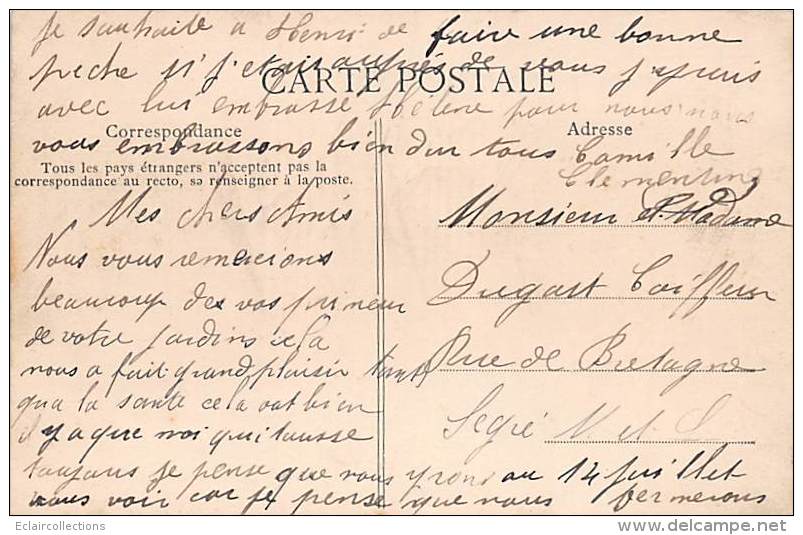 Je souhaite a Henri de faire une bonne
peche si j'etais auprés de vous j'y puis
CARTE POSTALE
avec lui embrasse Hélène pour nous nous
vous embrassons bien dur tous Camille
Clementine
Correspondance
Adresse
Tous les pays étrangers n'acceptent pas la
correspondance au recto, se renseigner à la poste.
Mes chers Amis
Nous vous remercions
beaucoup des vos primeur
de votre jardins cela
nous a fait grand plaisir tant
qua la santé cela vat bien
il y a que moi qui tousse
toujours je pense que nous yrons au 14 juillet
vous voir car je pense que nous fermerons
Monsieur et Madame
Dugast Coiffeur
Rue de Bretagne
Segré M et L
Eclaircollections
delcampe.net